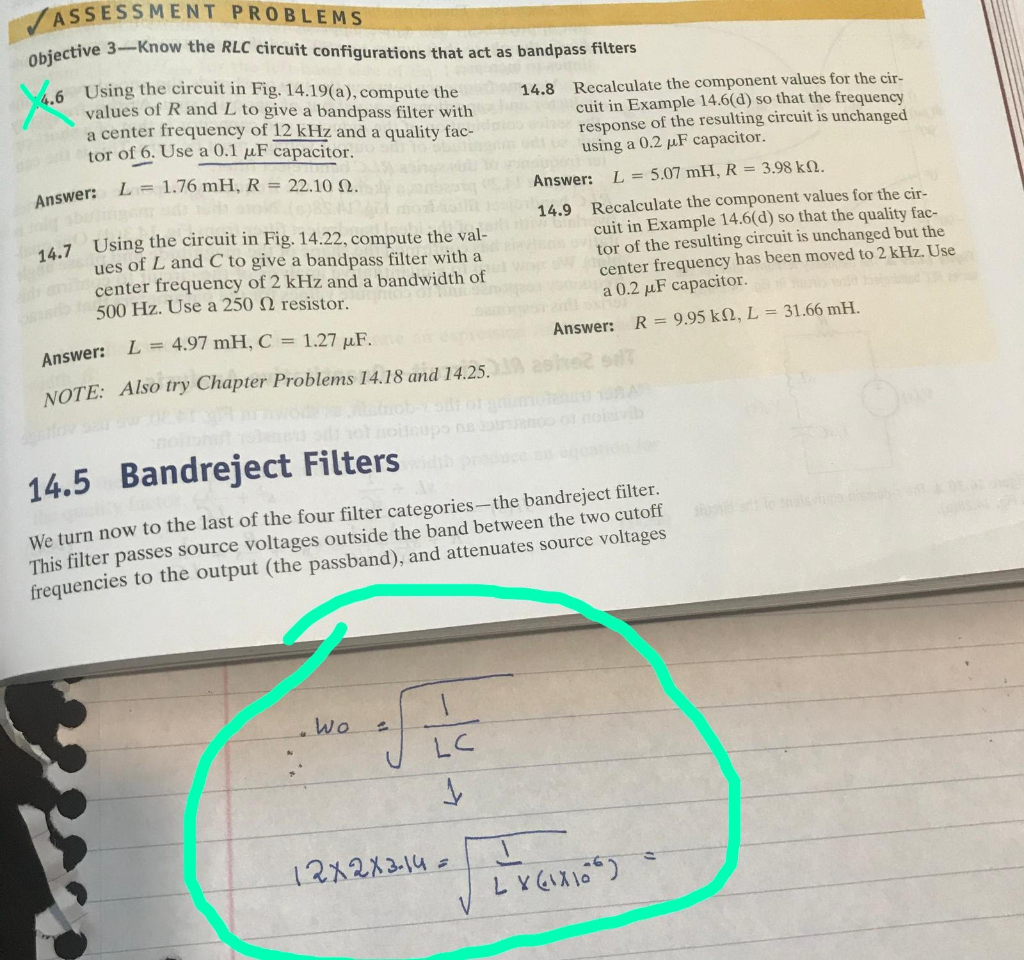 ✓ASSESSMENT PROBLEMS
Objective 3—Know the RLC circuit configurations that act as bandpass filters
4.6 Using the circuit in Fig. 14.19(a), compute the
values of R and L to give a bandpass filter with
a center frequency of 12 kHz and a quality fac-
tor of 6. Use a 0.1 μF capacitor.
Answer: L = 1.76 mH, R = 22.10 Ω.
14.7 Using the circuit in Fig. 14.22, compute the val-
ues of L and C to give a bandpass filter with a
center frequency of 2 kHz and a bandwidth of
500 Hz. Use a 250 Ω resistor.
Answer: L = 4.97 mH, C = 1.27 μF.
NOTE: Also try Chapter Problems 14.18 and 14.25.
14.8 Recalculate the component values for the cir-
cuit in Example 14.6(d) so that the frequency
response of the resulting circuit is unchanged
using a 0.2 μF capacitor.
Answer: L = 5.07 mH, R = 3.98 kΩ.
14.9 Recalculate the component values for the cir-
cuit in Example 14.6(d) so that the quality fac-
tor of the resulting circuit is unchanged but the
center frequency has been moved to 2 kHz. Use
a 0.2 μF capacitor.
Answer: R = 9.95 kΩ, L = 31.66 mH.
14.5 Bandreject Filters
We turn now to the last of the four filter categories—the bandreject filter.
This filter passes source voltages outside the band between the two cutoff
frequencies to the output (the passband), and attenuates source voltages
Wo = √(1/LC)
↓
12x2x3.14 = √(1/(L x (.1x10^-6))) =